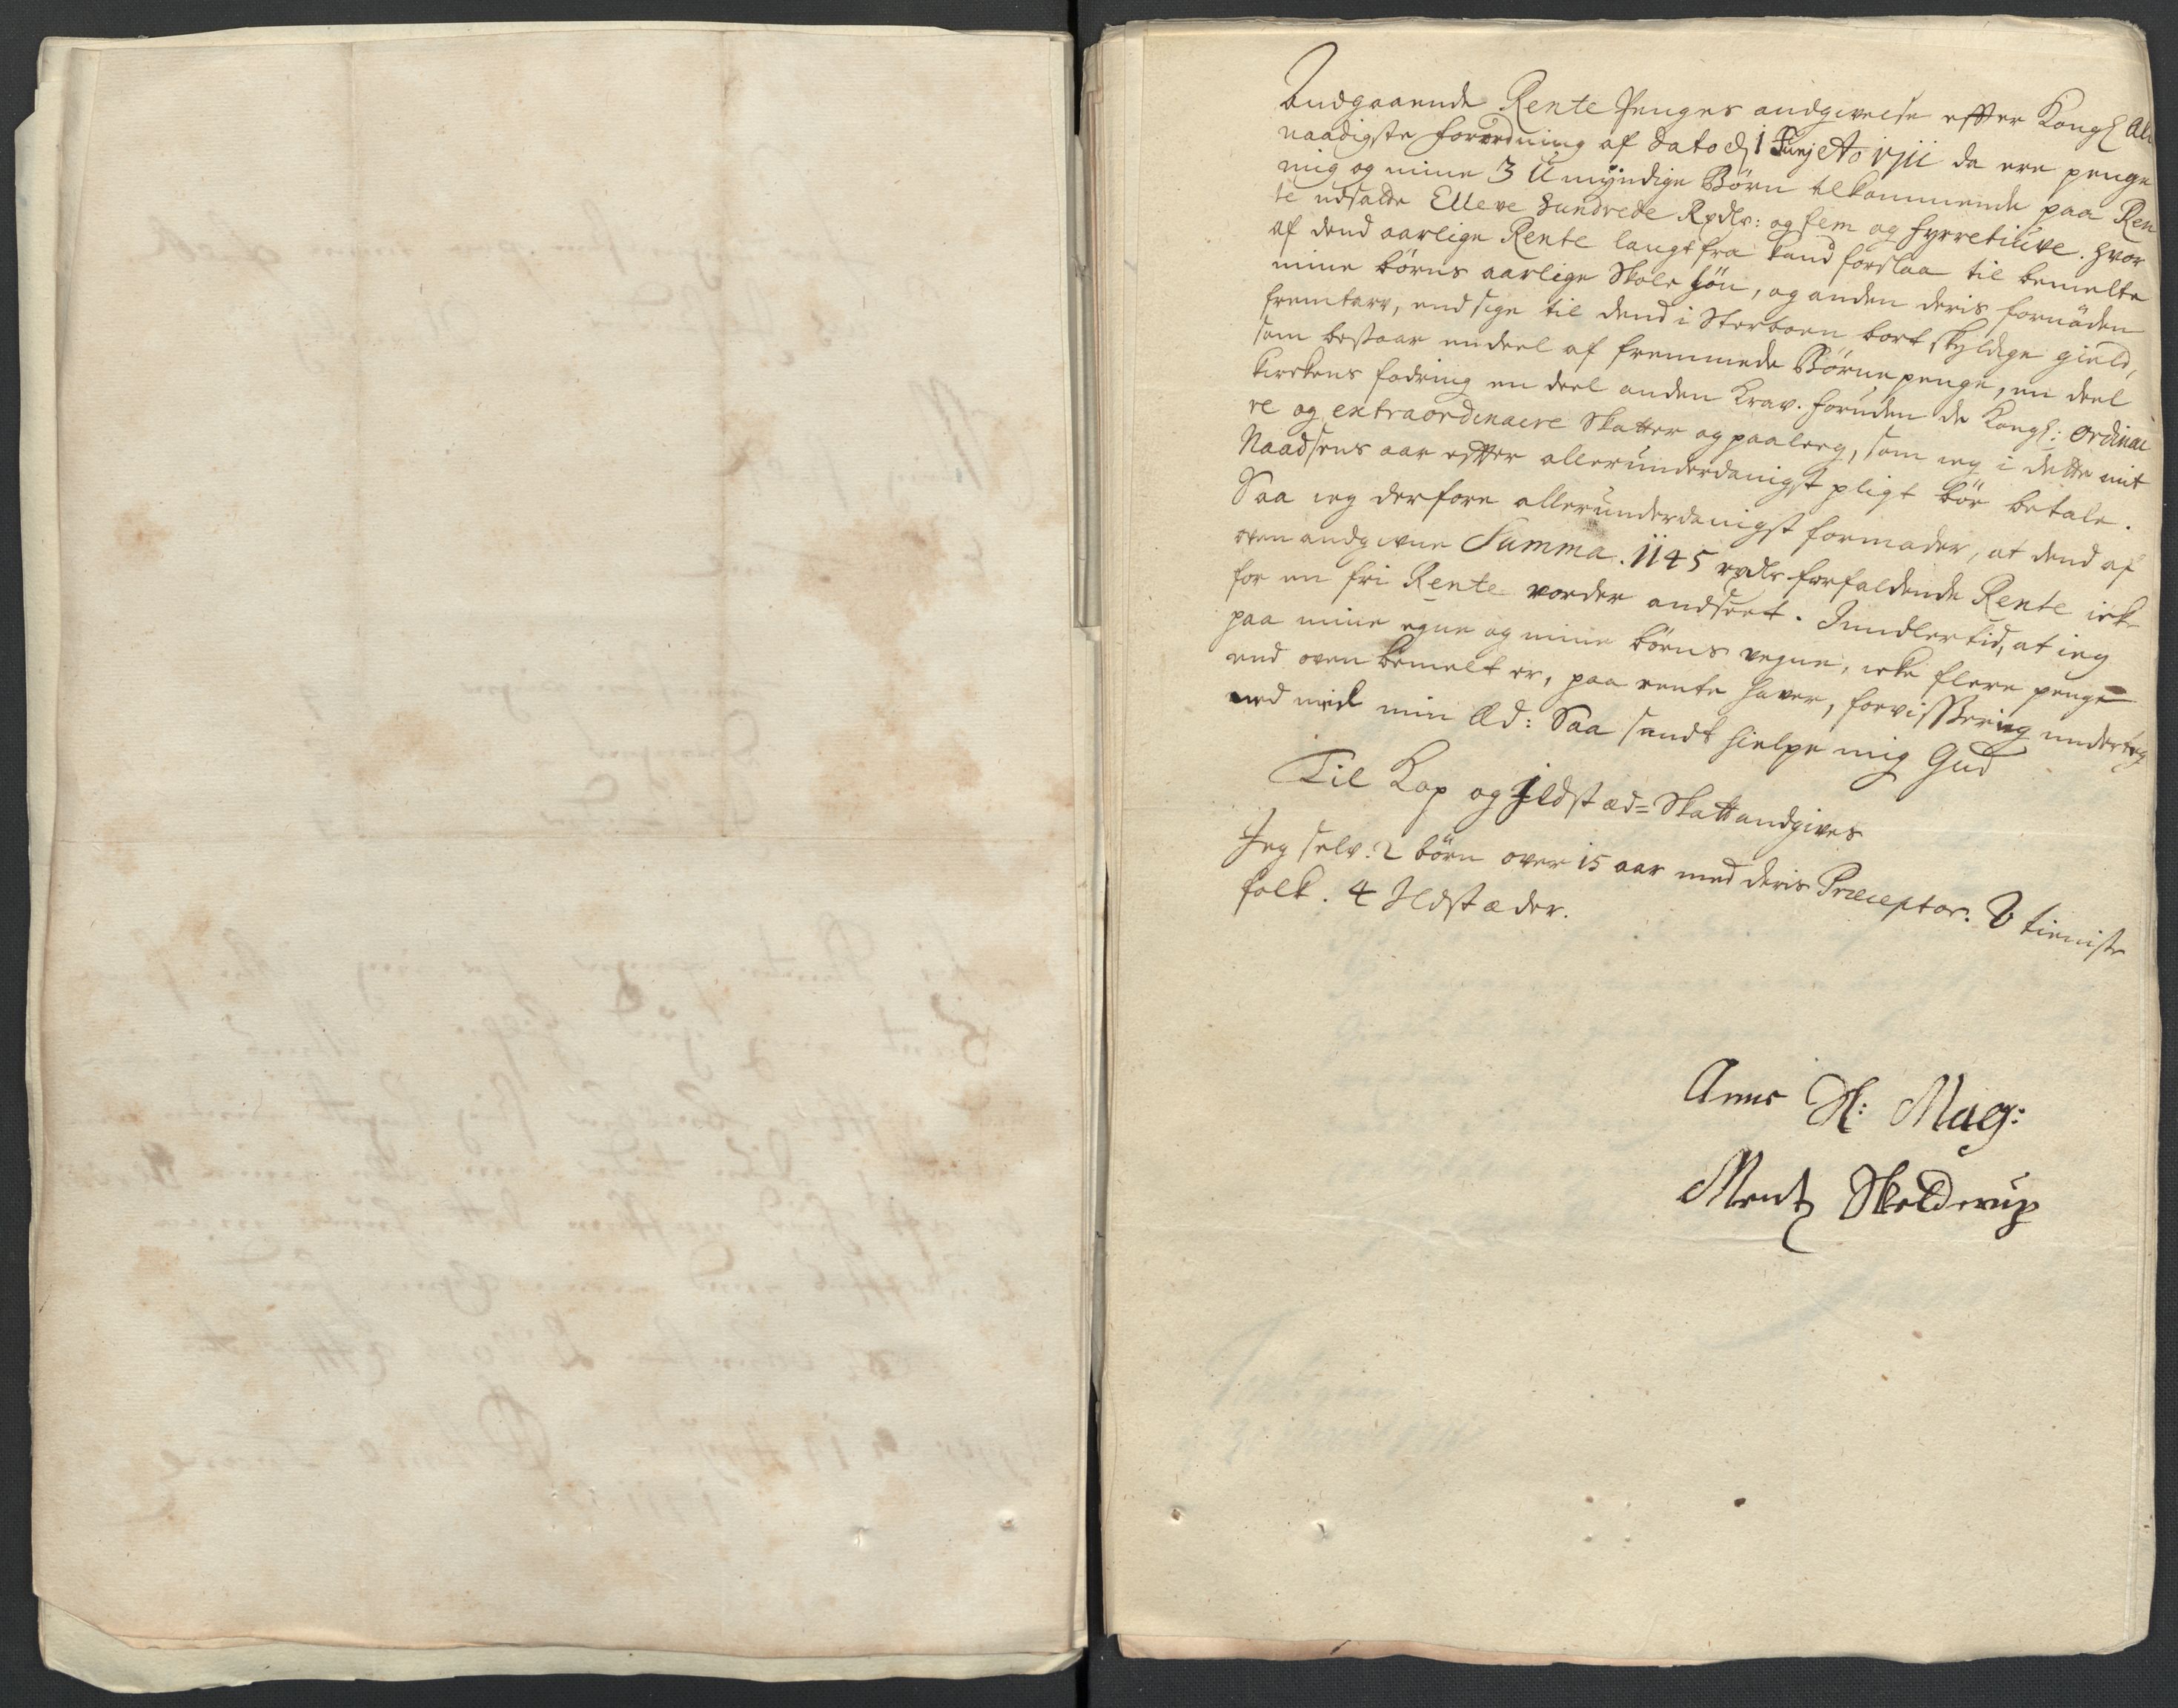 Andgaaende Rente Penges andgivelse effter Kongl All
naadigste forordning af dato d 1 Junj Ao 1711 da ere penge
mig og mine 3 Umyndige Børn tilkommende paa Ren
te udsatte Elleve Hundrede Rxdlr: og fem og fyrretiuve. Hvor
af dend aarlige Rente langt fra kand forslaa til bemelte
mine børns aarlige Skole løn, og anden deris fornøden
fremtarv, end sige til dend i Sterboen bort skyldige gield,
som bestaar en deel af fremmede Børne penge, en deel
kirkens fodring en deel anden Krav. foruden de Kongl: Ordinai
re og extraordinaire Skatter og paaleg, som ieg i dette mit
Naadsens aar effter allerunderdanigst pligt bør betale.
Saa ieg derfore allerunderdanigst formoder, at dend af
oven andgivne Summa. 1145 rxdlr forfaldende Rente icke
for en fri Rente vorder andseet. Imidlertid, at ieg
paa mine egne og mine børns vegne, icke flere penge
end oven bemelt er, paa rente haver, forvissBer ieg underteg
ned med min Æd: Saa sandt hielpe mig Gud
Til Kop og Ildstæd=Skatt andgives
Jeg selv. 2 børn over 15 aar med deris Præceptor. tieniste
folk. 4 Ildstæder.
Anne Sl: Mag:
Mentz Skelderup